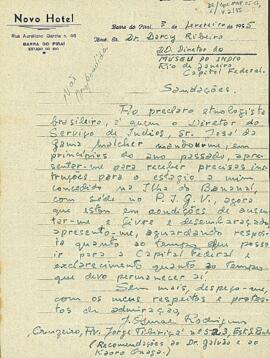 Novo Hotel
Rua Aureliano Garcia n. 46
BARRA DO PIRAÍ
ESTADO DO RIO
Barra do Piraí, 8 de fevereiro de 1955
Ilmo. Sr. Dr. Darcy Ribeiro
DD. Diretor do
MUSEU DO INDIO
Rio de Janeiro
Capital Federal.
Não
respondida
Saudações.
Ao preclaro etnologista
brasileiro, é que o Diretor do
Serviço de Indios, Sr. José da
Gama Malcher mandou-me, em
principios do ano passado, apresen-
tar-me para receber precisas ins-
truções para o estagio a mim
concedido na Ilha do Bananal,
com séde no P.I.G.V., agora
que estou em condições de ausen-
tar-me e livre e desembaraçado
apresento-me, aguardando respos-
ta quanto ao tempo que posso
ir para a Capital Federal e
esclarecimento quanto ao tempo
que devo permanecer aí.
Sem mais, despeço-me,
com os meus respeitos e protes-
tos de admiração,
Rodrigues
Cruzeiro, Av. Jorge Tibiriçá nº 523, Est. S. Paulo
(Recomendações ao Dr. Galvão e ao